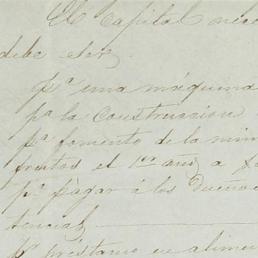 El Capital nece
debe ser
Pª una máquina
pª la Construccion
pª fomento de la min
frestos el 1er año, a
pª pagar á los Dueños
tencias
Pª préstamo en alime